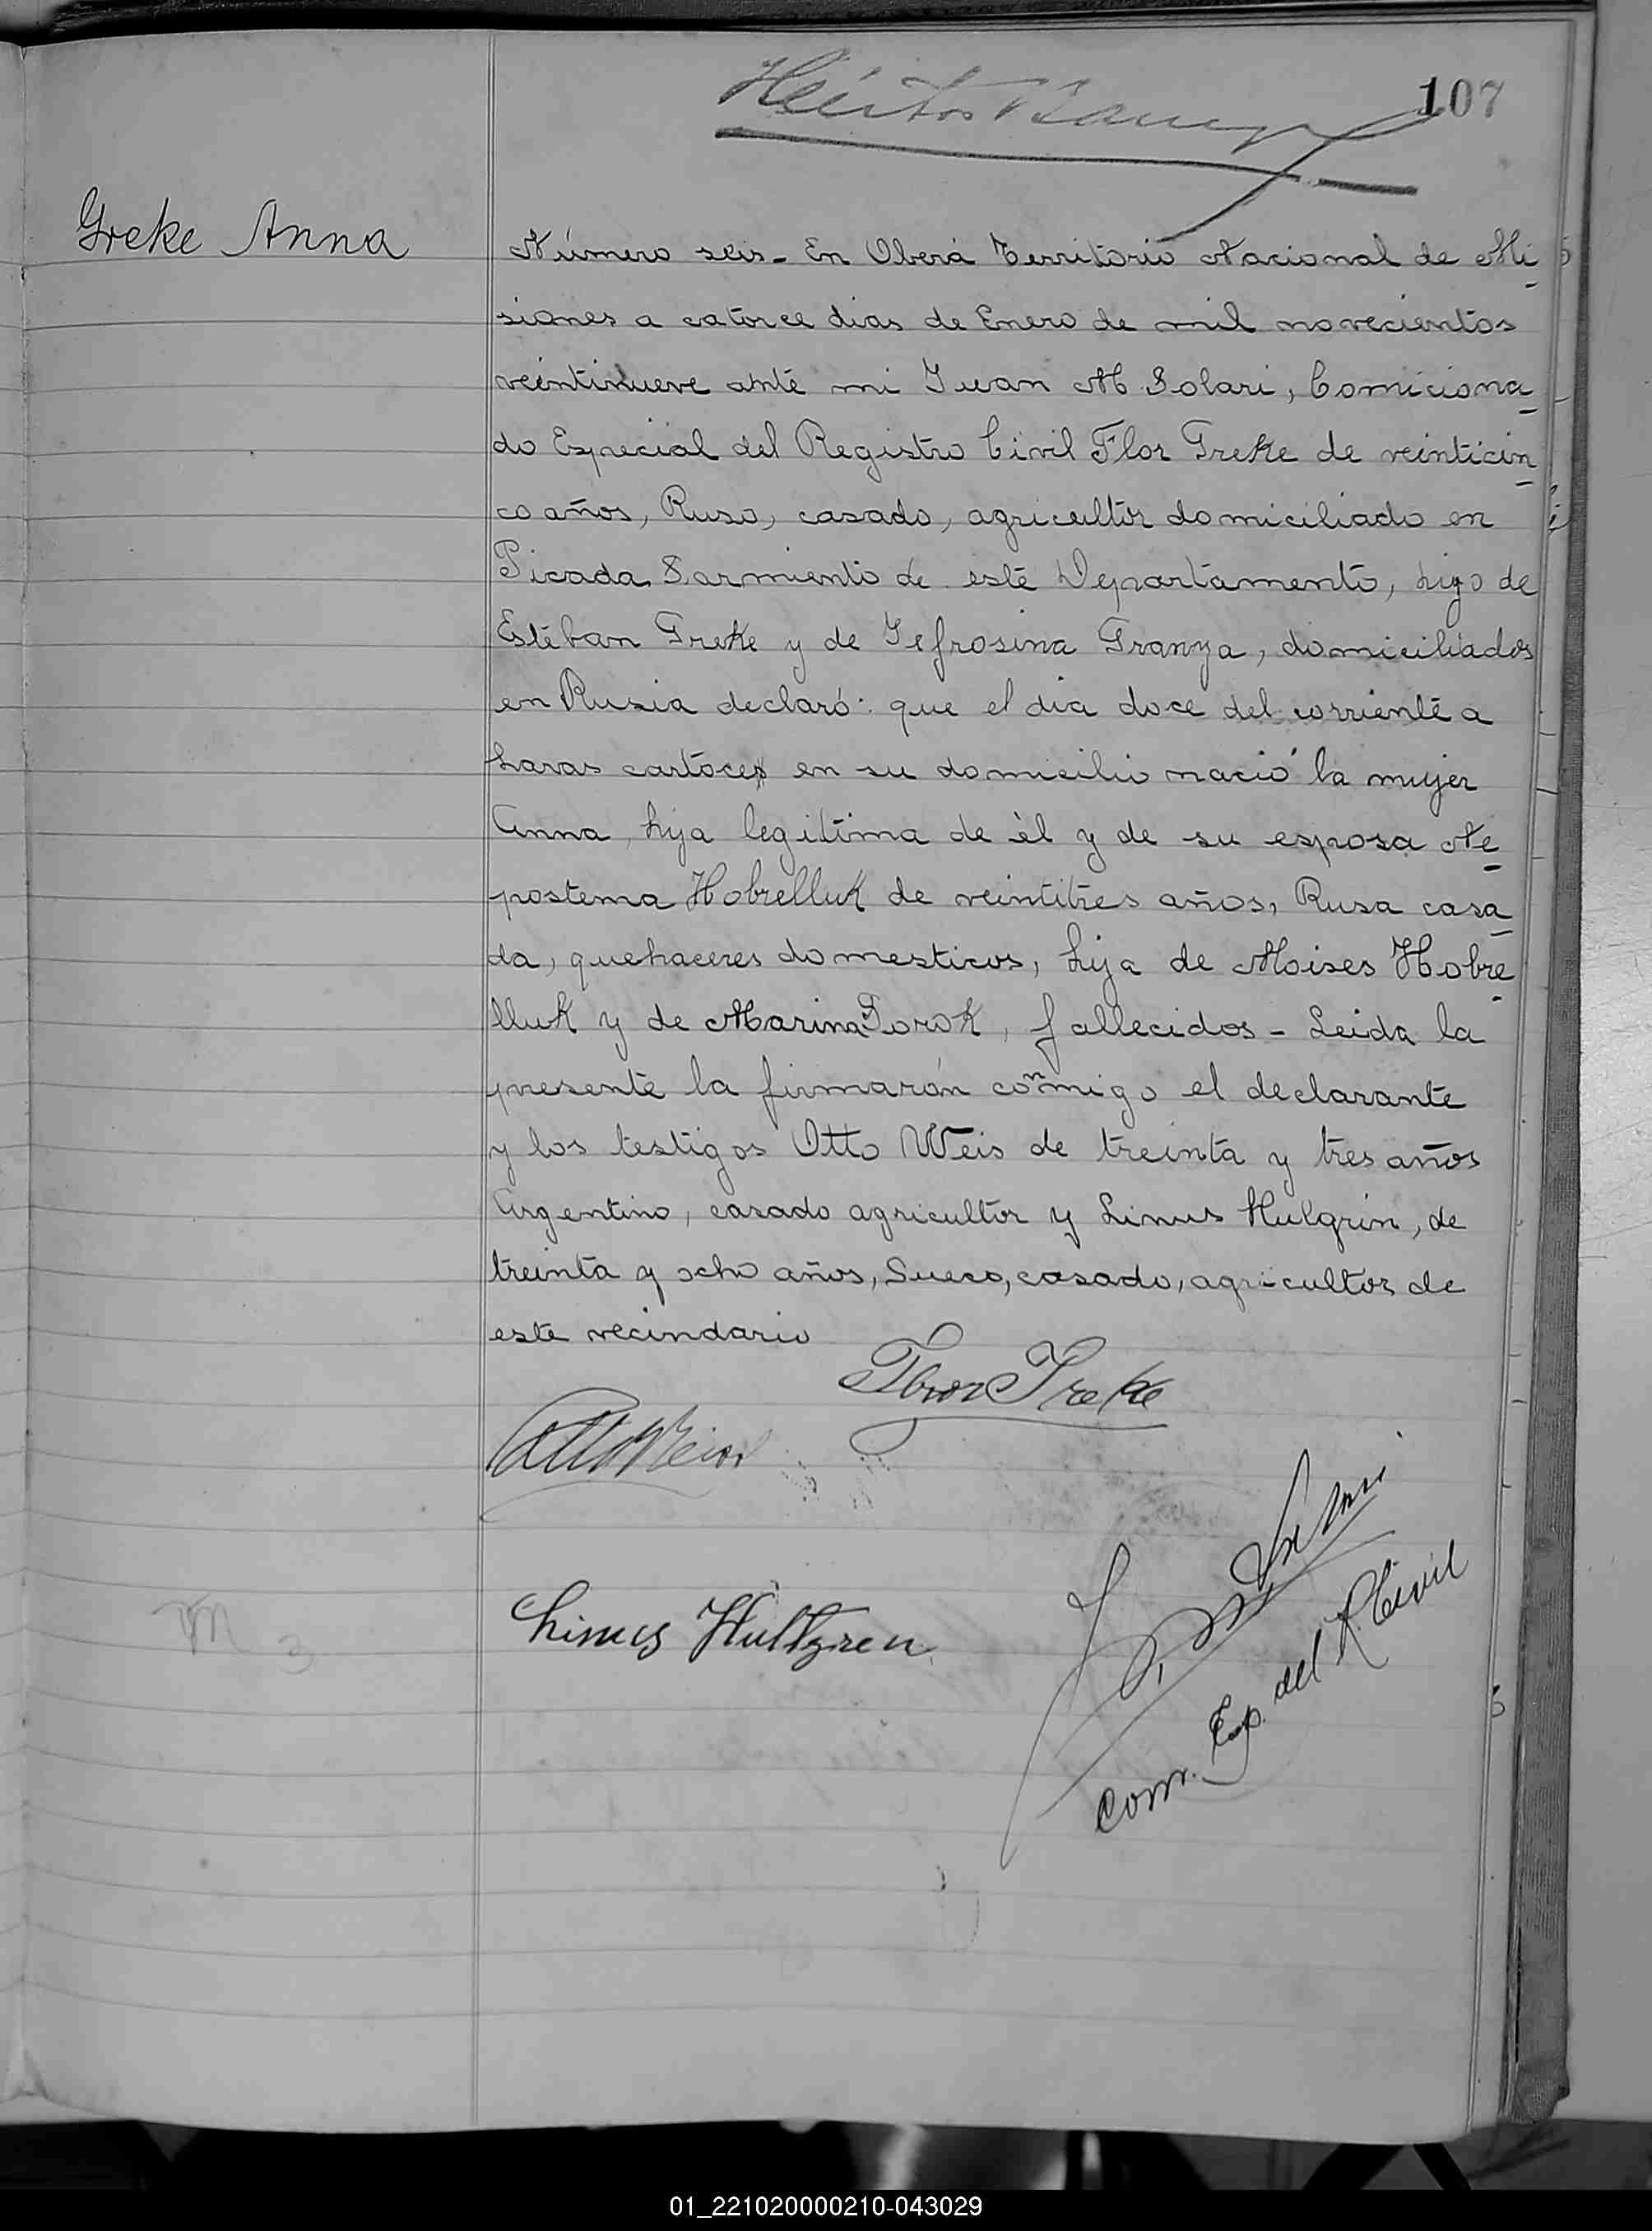 107
Greke Anna
Número seis - En Oberá Territorio Nacional de Mi-
siones a catorce dias de Enero de mil novecientos
veintinueve ante mi Juan M Solari, Comiciona-
do Especial del Registro Civil Flor Greke de veinticin-
co años, Ruso, casado, agricultor domiciliado en
Picada Sarmiento de este Departamento, hijo de
Estéban Greke y de Jefrosina Granza, domiciliados
en Rusia declaró: que el dia doce del corriente a
horas cartoce en su domicilio nació la mujer
Anna, hija legitima de él y de su esposa Ne-
postema Hobrelluk de veintitres años, Rusa casa-
da, quehaceres domesticos, hija de Moises Hobre-
lluk y de Marina Gorok, fallecidos - Leida la
presente la firmarón conmigo el declarante
y los testigos Otto Weis de treinta y tres años
Argentino, casado agricultor y Linus Hulgrin, de
treinta y ocho años, Sueco, casado, agricultor de
este vecindario
Flor Greke
Otto Weis
Linus Hultgren
Com. Esp. del R. Civil
01_221020000210-043029